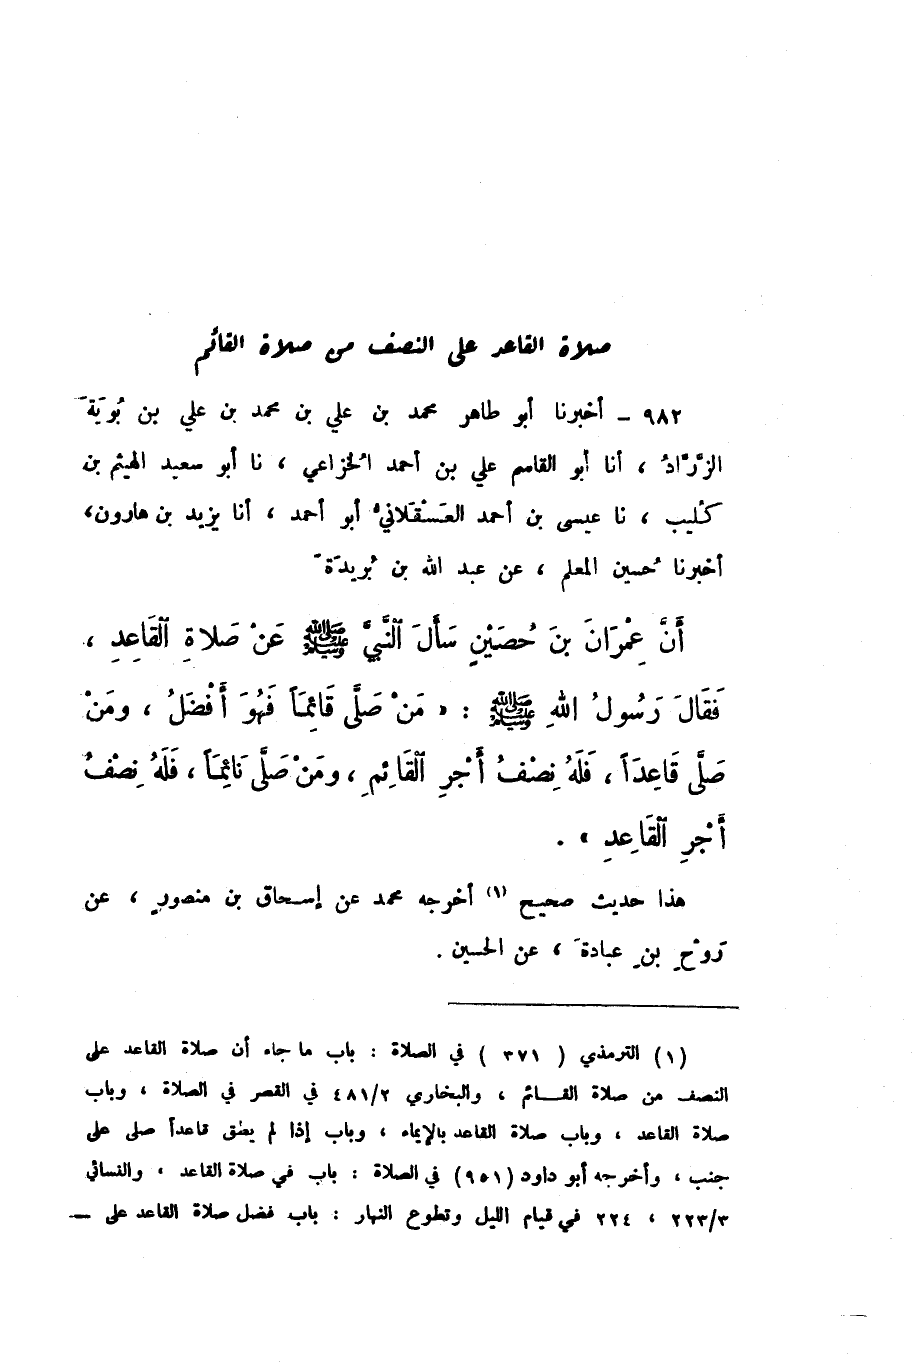 صلاة القاعد على النصف من صلاة القائم
٩٨٢ ـ أخبرنا أبو طاهر محمد بن علي بن محمد بن علي بن بُويَةَ
الزَّرَّادُ ، أنا أبو القاسم علي بن أحمد الخُزاعي ، نا أبو سعيد الهيثم بن
كُلَيب ، نا عيسى بن أحمد العَسْقَلانيُّ أبو أحمد ، أنا يزيد بن هارون،
أخبرنا حُسين المعلم ، عن عبد الله بن بُريدَةَ
أَنَّ عِمْرَانَ بنَ حُصَيْنٍ سَأَلَ ٱلنَّبِيَّ ﷺ عَنْ صَلاةِ ٱلقَاعِدِ ،
فَقَالَ رَسُولُ اللهِ ﷺ : « مَنْ صَلَّى قَائِمَاً فَهُوَ أَفْضَلُ ، ومَنْ
صَلَّى قَاعِدَاً ، فَلَهُ نِصْفُ أَجْرِ ٱلقَائِمِ ، ومَنْ صَلَّى نَائِمَاً ، فَلَهُ نِصْفُ
أَجْرِ ٱلقَاعِدِ » .
هذا حديث صحيح (١) أخرجه محمد عن إسحاق بن منصورٍ ، عن
رَوْحِ بنِ عبادةَ ، عن الحسين .
(١) الترمذي ( ٣٧١ ) في الصلاة : باب ما جاء أن صلاة القاعد على
النصف من صلاة القـــائم ، والبخاري ٤٨١/٢ في القصر في الصلاة ، وباب
صلاة القاعد ، وباب صلاة القاعد بالإيماء ، وباب إذا لم يطق قاعداً صلى على
جنب ، وأخرجه أبو داود (٩٥١) في الصلاة : باب في صلاة القاعد ، والنسائي
٢٢٣/٣ ، ٢٢٤ في قيام الليل وتطوع النهار : باب فضل صلاة القاعد على ـــ